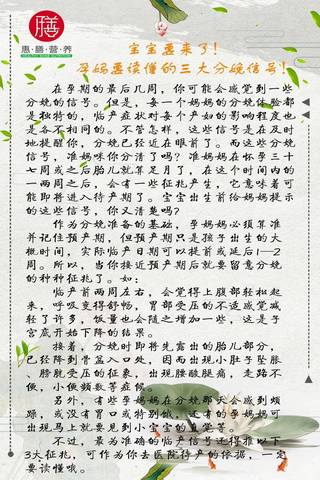 膳
惠·膳·营·养
宝宝要来了!
孕妈要读懂的三大分娩信号!
在孕期的最后几周,你可能会感觉到一些
分娩的信号。但是,每一个妈妈的分娩体验都
是独特的,临产症状对每个产妇的影响程度也
是各不相同的。不管怎样,这些信号是在及时
地提醒你,分娩已经近在眼前了。而这些分娩
信号,准妈咪你分清了吗?准妈妈在怀孕三十
七周或之后胎儿就算足月了,在这个时间内的
一两周之后,会有一些征兆产生,它意味着可
能即将进入待产期了。宝宝出生前给妈妈提示
的这些信号,你又清楚吗?
作为分娩准备的基础,孕妈妈必须算准
并记住预产期,但预产期只是孩子出生的大
概时间,实际临产日期可以提前或延后1—2
周。所以,当你接近预产期后就要留意分娩
的种种征兆了。如:
临产前两周左右,会觉得上腹部轻松起
来,呼吸变得舒畅,胃部受压的不适感觉减
轻了许多,饭量也会随之增加一些,这是子
宫底开始下降的结果。
接着,分娩时即将先露出的胎儿部分,
已经降到骨盆入口处,因而出现小肚子坠胀、
、膀胱受压的征象,出现腰酸腿痛,走路不
便,小便频数等症候。
另外,有些孕妈妈在分娩那天会感到烦
躁,或没有胃口或特别饿,还有的孕妈妈可
出现马上就要见到小宝宝的直觉等。
不过,最为准确的临产信号还得推以下
3大征兆,可作为你去医院待产的依据,一定
要读懂哦。